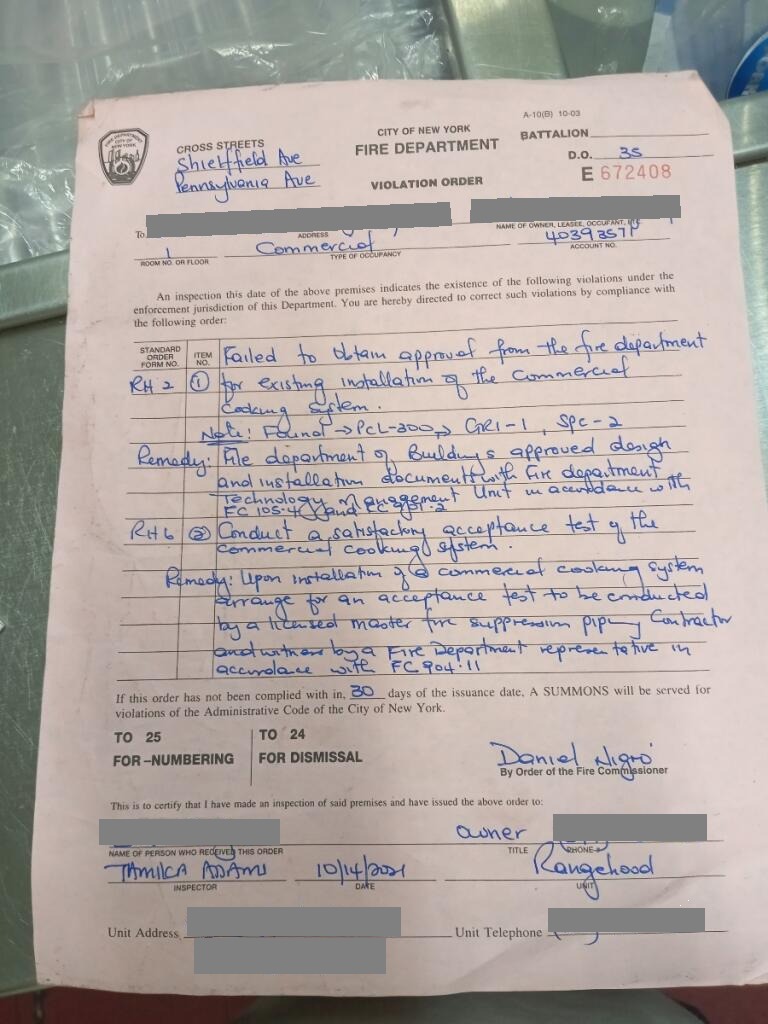 A-10(B) 10-03
FIRE DEPARTMENT
CITY OF
NEW YORK
CROSS STREETS
Shieffield Ave
Pennsylvania Ave
CITY OF NEW YORK
FIRE DEPARTMENT
VIOLATION ORDER
BATTALION
D.O. 35
E 672408
To
ADDRESS
NAME OF OWNER, LEASEE, OCCUPANT, ETC
1
Commercial
40393571
ROOM NO. OR FLOOR
TYPE OF OCCUPANCY
ACCOUNT NO.
An inspection this date of the above premises indicates the existence of the following violations under the
enforcement jurisdiction of this Department. You are hereby directed to correct such violations by compliance with
the following order:
STANDARD ORDER FORM NO.
ITEM NO.
Failed to obtain approval from the fire department
RH2 1 for existing installation of the commercial
cooking system.
Note: Found → PCL-300 → GRI-1, SPC-2
Remedy: File department of Buildings approved design
and installation documents with Fire department
Technology Management Unit in accordance with
FC 105.4 and FC
RH6 2 Conduct a satisfactory acceptance test of the
commercial cooking system.
Remedy: Upon installation of a commercial cooking system
arrange for an acceptance test to be conducted
by a licensed master fire suppression piping Contractor
and witness by a Fire Department representative in
accordance with FC 904.11
If this order has not been complied with in, 30 days of the issuance date, A SUMMONS will be served for
violations of the Administrative Code of the City of New York.
TO 25
FOR –NUMBERING
TO 24
FOR DISMISSAL
Daniel Nigro
By Order of the Fire Commissioner
This is to certify that I have made an inspection of said premises and have issued the above order to:
owner
NAME OF PERSON WHO RECEIVED THIS ORDER
TITLE
PHONE
TAMILCA ADDAMS
10/14/2021
Rangehood
INSPECTOR
DATE
UNIT
Unit Address
Unit Telephone